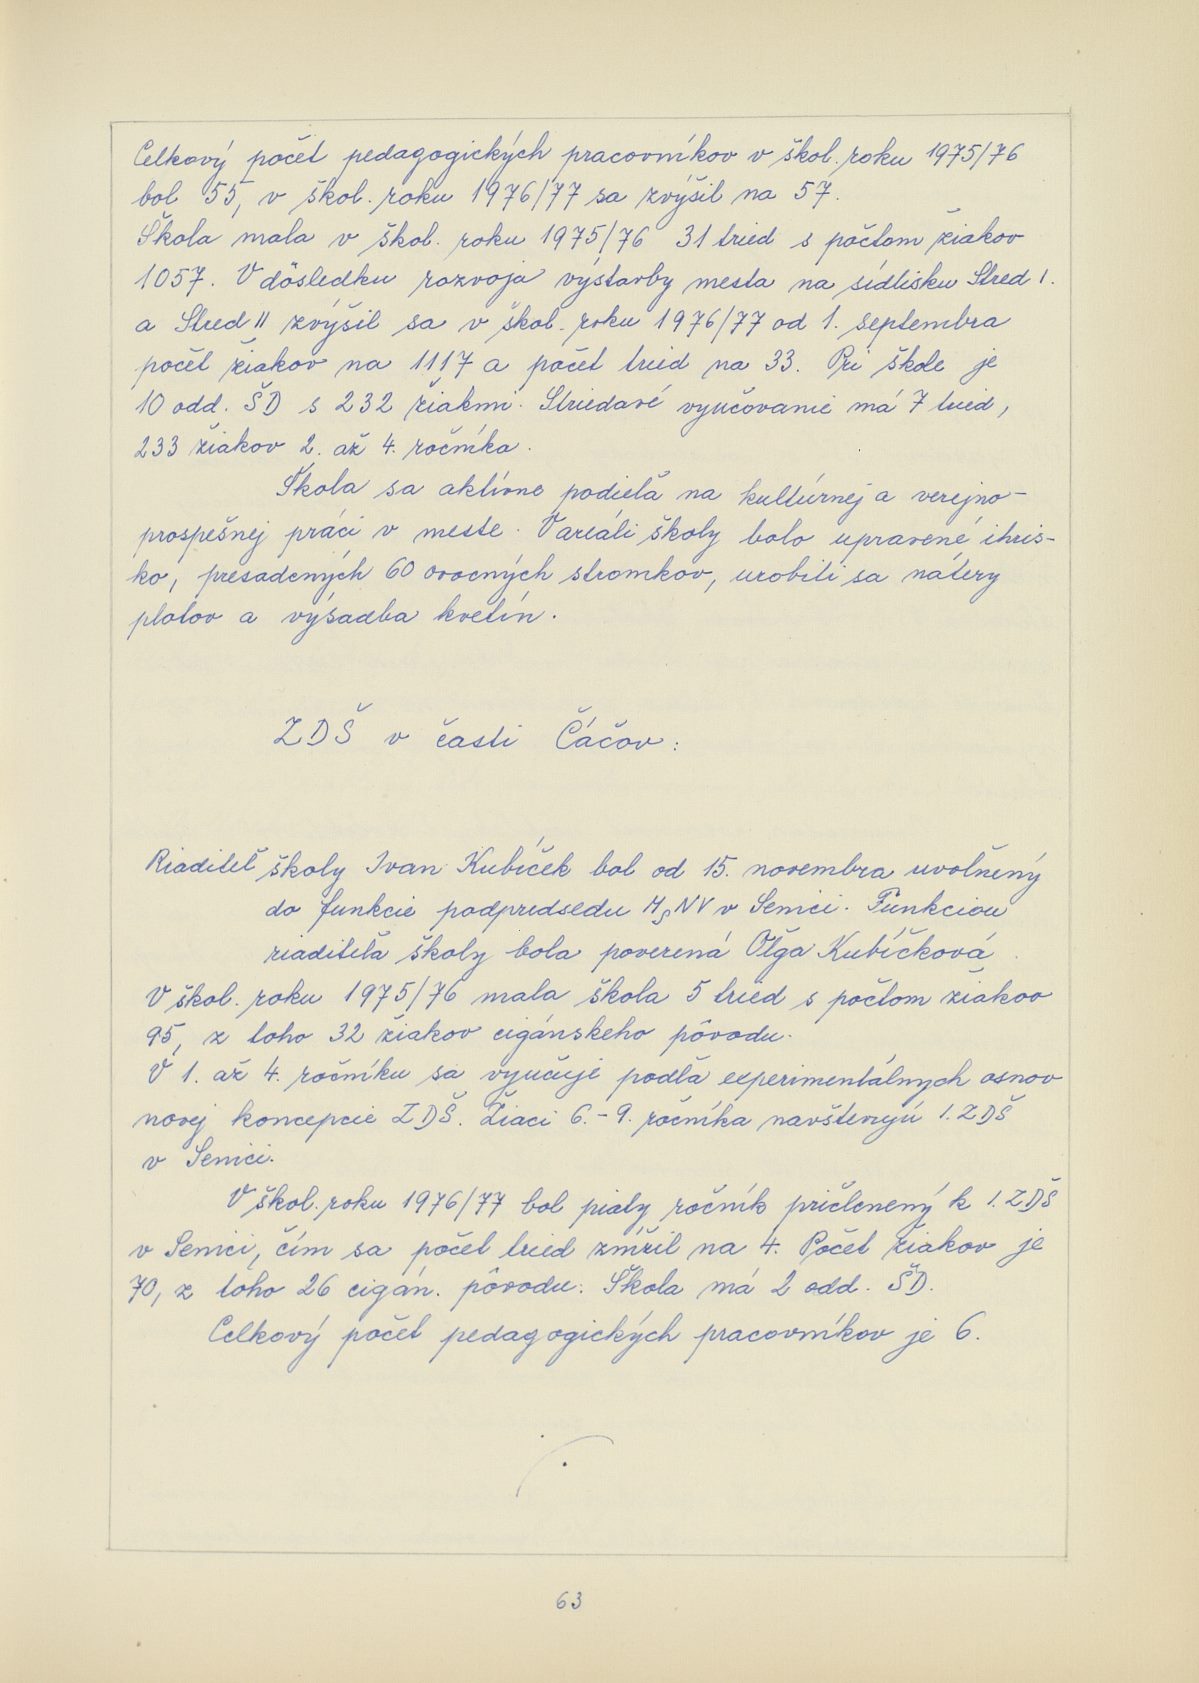 Celkový počet pedagogických pracovníkov v škol. roku 1975/76
bol 55, v škol. roku 1976/77 sa zvýšil na 57.
Škola mala v škol. roku 1975/76 31 tried s počtom žiakov
1057. V dôsledku rozvoja výstavby mesta na sídlisku Stred I.
a Stred II zvýšil sa v škol. roku 1976/77 od 1. septembra
počet žiakov na 1117 a počet tried na 33. Pri škole je
10 odd. ŠD s 232 žiakmi. Striedavé vyučovanie má 7 tried,
233 žiakov 2. až 4. ročníka.
Škola sa aktívne podieľa na kultúrnej a verejno-
prospešnej práci v meste. V areáli školy bolo upravené ihris-
ko, presadených 60 ovocných stromkov, urobili sa nátery
plotov a výsadba kvetín.
ZDŠ v časti Čáčov:
Riaditeľ školy Ivan Kubíček bol od 15. novembra uvoľnený
do funkcie podpredsedu MsNV v Senici. Funkciou
riaditeľa školy bola poverená Oľga Kubíčková.
V škol. roku 1975/76 mala škola 5 tried s počtom žiakov
95, z toho 32 žiakov cigánskeho pôvodu.
V 1. až 4. ročníku sa vyučuje podľa experimentálnych osnov
novej koncepcie ZDŠ. Žiaci 6.-9. ročníka navštevujú 1. ZDŠ
v Senici.
V škol. roku 1976/77 bol piaty ročník pričlenený k 1. ZDŠ
v Senici, čím sa počet tried znížil na 4. Počet žiakov je
70, z toho 26 cigán. pôvodu. Škola má 2 odd. ŠD.
Celkový počet pedagogických pracovníkov je 6.
63